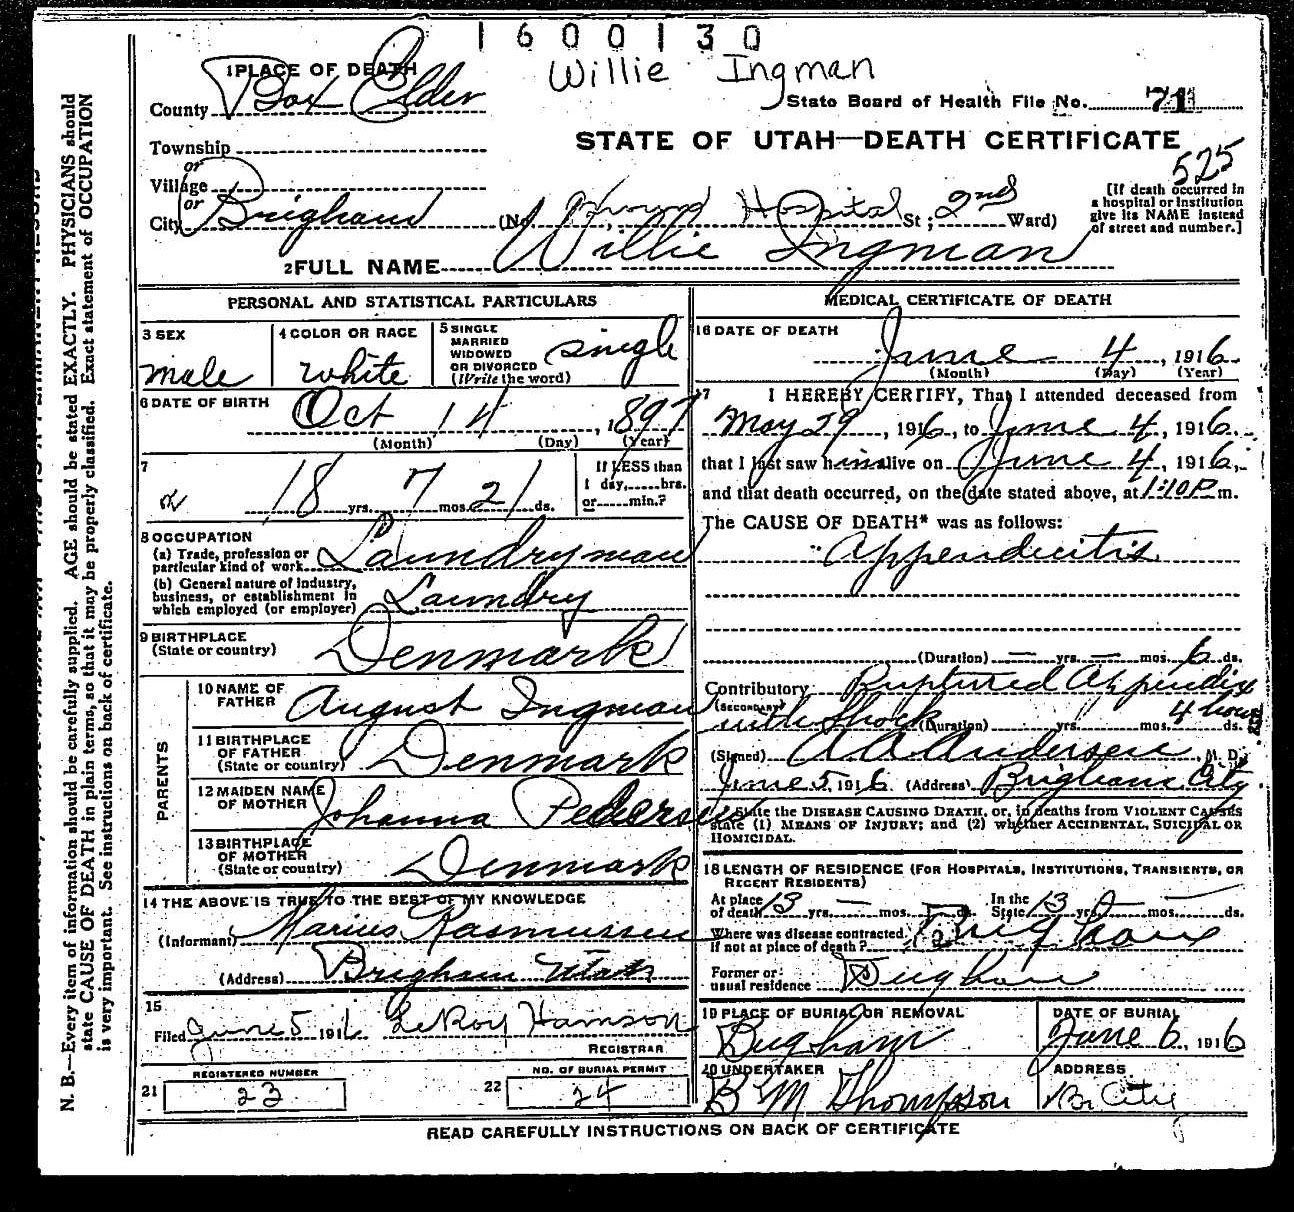 1600130
Willie Ingman
1 PLACE OF DEATH
County Box Elder
State Board of Health File No. 71
STATE OF UTAH—DEATH CERTIFICATE
525
Township
or
Village
or
City Brigham
(No. Hospital St; 2nd Ward)
[If death occurred in
a hospital or institution
give its NAME instead
of street and number.]
2 FULL NAME Willie Ingman
PERSONAL AND STATISTICAL PARTICULARS
3 SEX
male
4 COLOR OR RACE
white
5 SINGLE
MARRIED
WIDOWED
OR DIVORCED
(Write the word)
single
6 DATE OF BIRTH
Oct 14, 1897
(Month) (Day) (Year)
7
18 yrs. 7 mos. 21 ds.
If LESS than
1 day, hrs.
or min.?
8 OCCUPATION
(a) Trade, profession or
particular kind of work Laundryman
(b) General nature of industry,
business, or establishment in
which employed (or employer) Laundry
9 BIRTHPLACE
(State or country) Denmark
PARENTS
10 NAME OF
FATHER August Ingman
11 BIRTHPLACE
OF FATHER
(State or country) Denmark
12 MAIDEN NAME
OF MOTHER Johanna Pedersen
13 BIRTHPLACE
OF MOTHER
(State or country) Denmark
14 THE ABOVE IS TRUE TO THE BEST OF MY KNOWLEDGE
(Informant) Marius Rasmussen
(Address) Brigham Utah
15
Filed June 5 1916 LeRoy Hamson
REGISTRAR
REGISTERED NUMBER
21 23
NO. OF BURIAL PERMIT
22 24
MEDICAL CERTIFICATE OF DEATH
16 DATE OF DEATH
June 4, 1916
(Month) (Day) (Year)
17 I HEREBY CERTIFY, That I attended deceased from
May 29, 1916, to June 4, 1916.
that I last saw him alive on June 4, 1916,
and that death occurred, on the date stated above, at 1:10 P m.
The CAUSE OF DEATH* was as follows:
Appendicitis
(Duration) — yrs. — mos. 6 ds.
Contributory Ruptured Appendix
(SECONDARY)
with Shock (Duration) yrs. mos. 4 hours ds.
(Signed) A. A. Andersen, M. D.
June 5, 1916 (Address) Brigham City
*State the DISEASE CAUSING DEATH, or, in deaths from VIOLENT CAUSES
state (1) MEANS OF INJURY; and (2) whether ACCIDENTAL, SUICIDAL OR
HOMICIDAL.
18 LENGTH OF RESIDENCE (FOR HOSPITALS, INSTITUTIONS, TRANSIENTS, OR
RECENT RESIDENTS)
At place
of death 13 yrs. — mos. ds.
In the
State 13 yrs. — mos. — ds.
Where was disease contracted,
if not at place of death? Brigham
Former or
usual residence Brigham
19 PLACE OF BURIAL OR REMOVAL
Brigham
DATE OF BURIAL
June 6, 1916
20 UNDERTAKER
B M Thompson
ADDRESS
Br City
READ CAREFULLY INSTRUCTIONS ON BACK OF CERTIFICATE
N. B.—Every item of information should be carefully supplied. AGE should be stated EXACTLY. PHYSICIANS should
state CAUSE OF DEATH in plain terms, so that it may be properly classified. Exact statement of OCCUPATION
is very important. See instructions on back of certificate.